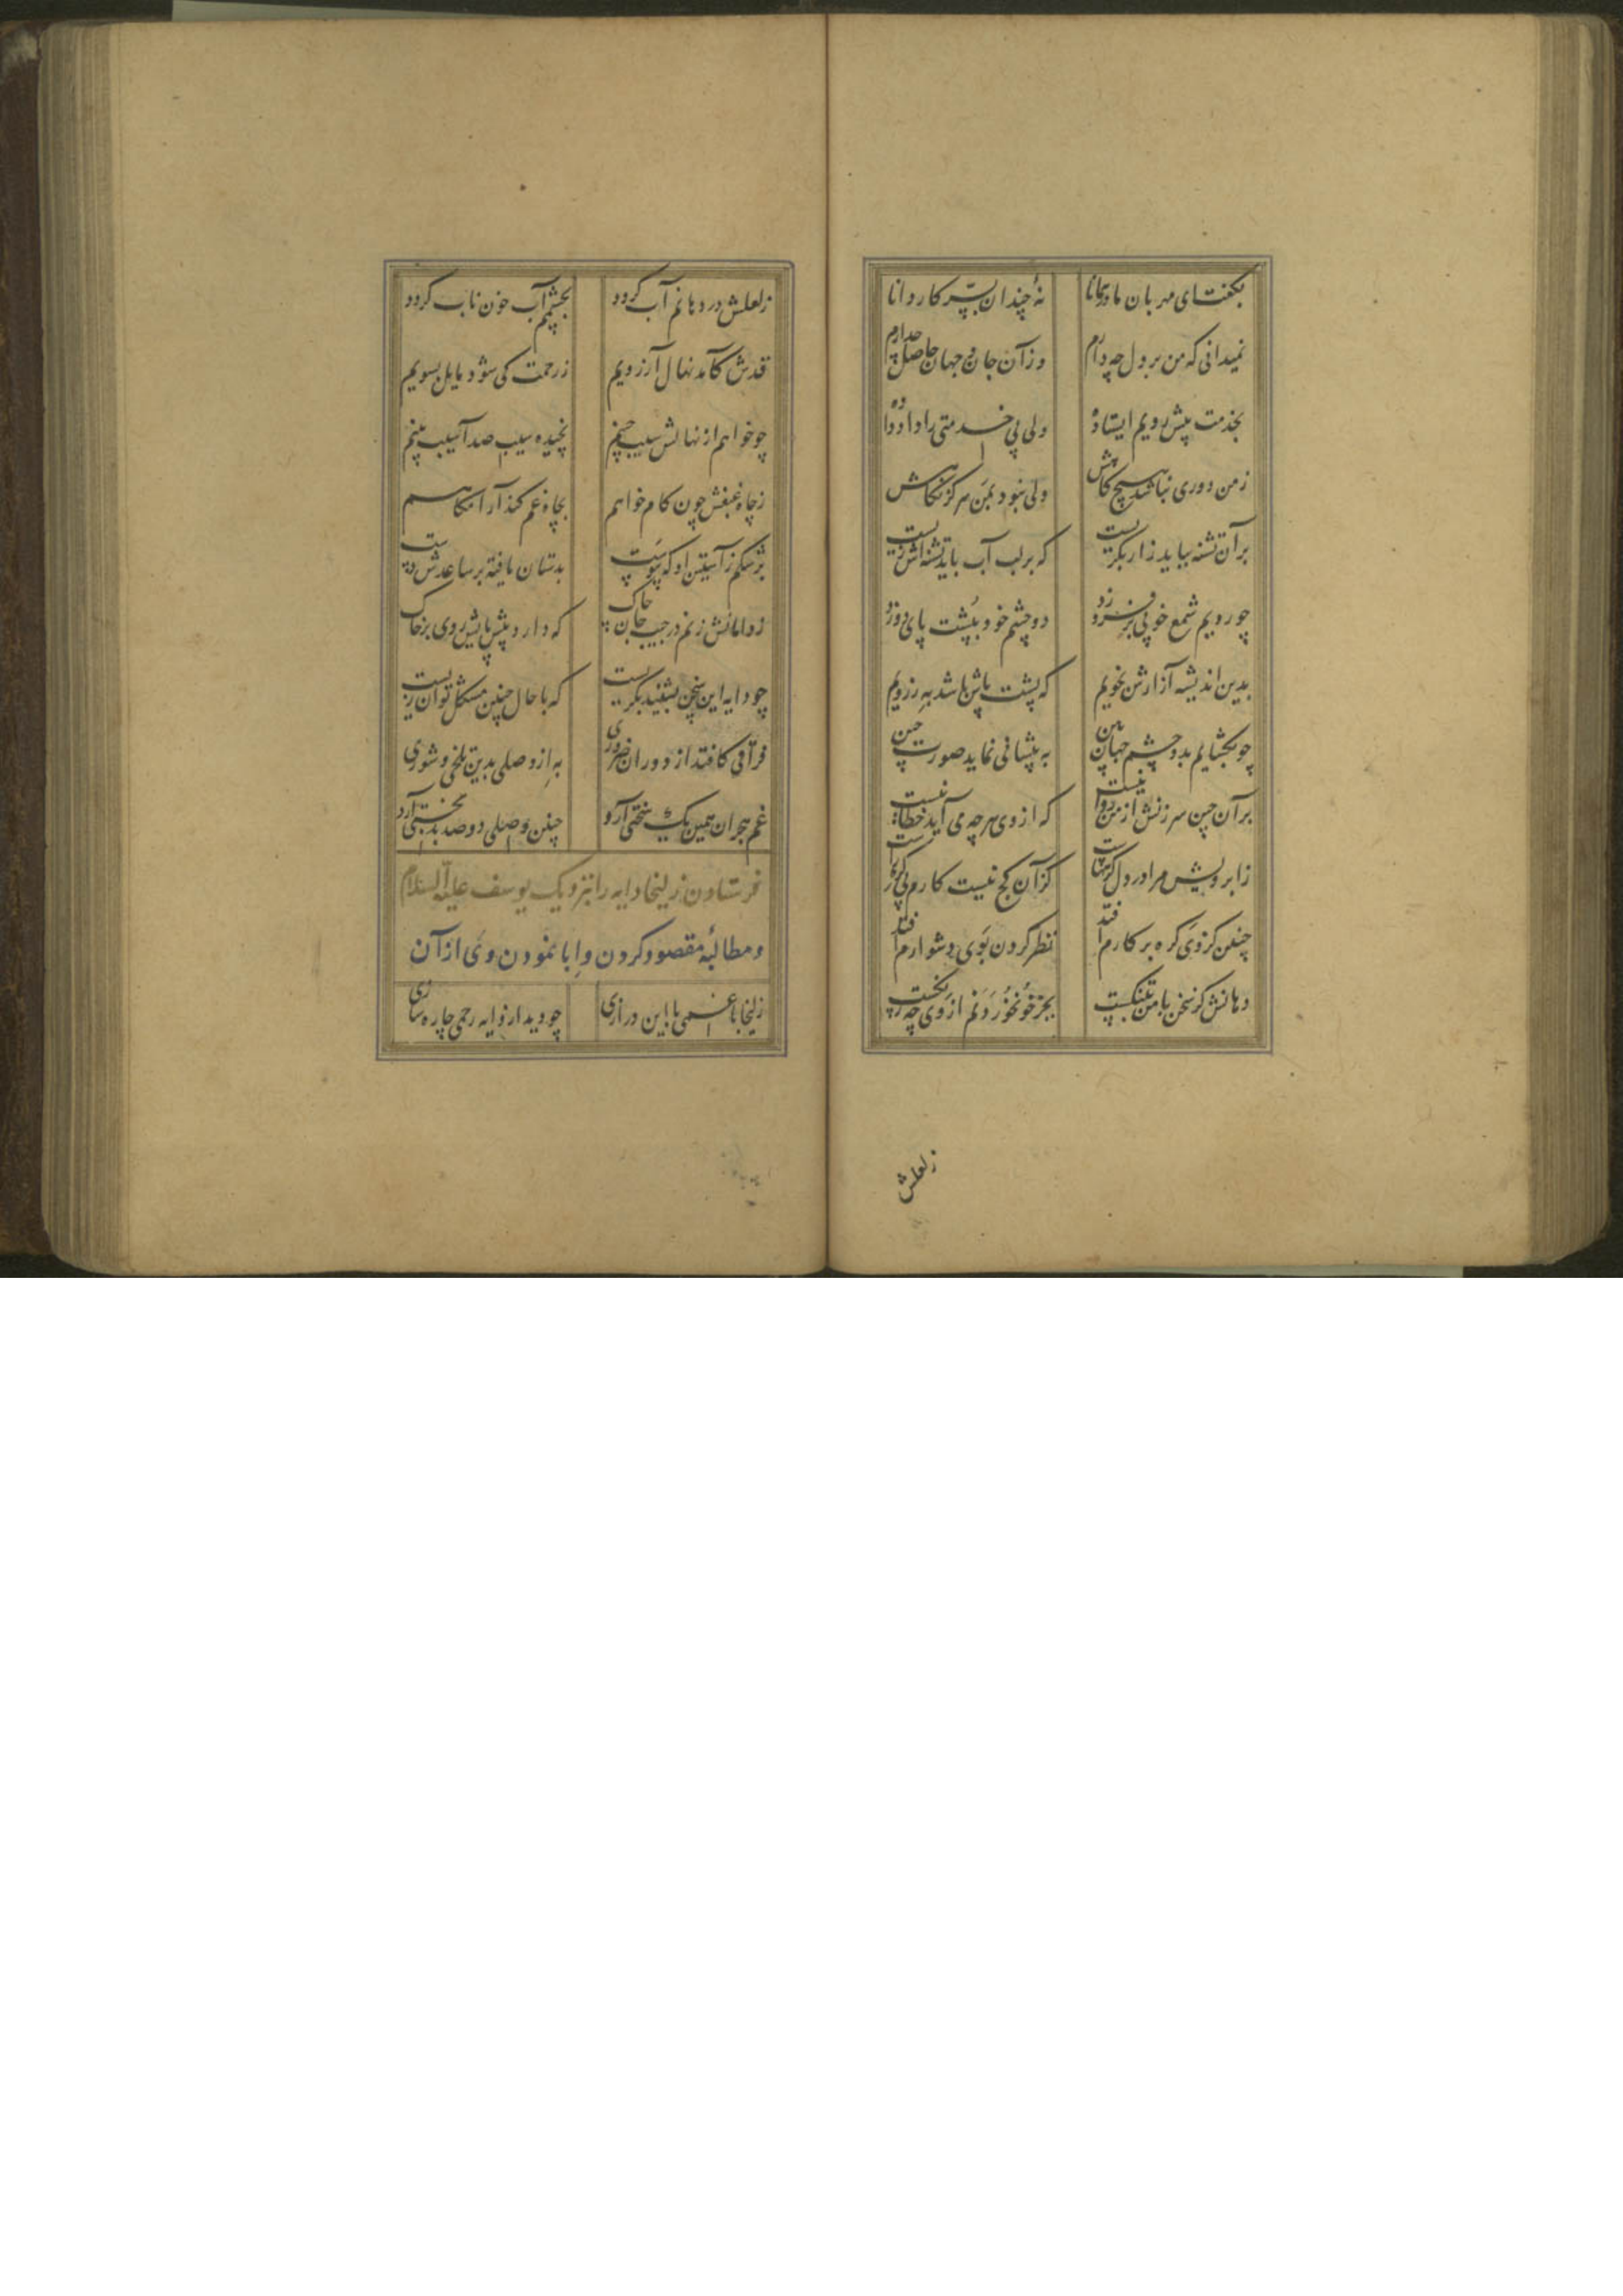 بگفت ای مهربان مادر همانا نهٔ چندان بسرّ کار دانا
نمیدانی که من بر دل چه دارم وز آن جان و جهان حاصل چه دارم
بخدمت پیش رویم ایستاده ولی پی خدمتی را داد داده
ز من دوری نباشد هیچ گاهش ولی نبود بمن هرگز نگاهش
بر آن تشنه بباید زار بگریست که بر لب آب باید تشنه اش زیست
چو رویم شمع خوبی بر فروزد دو چشم خود بپشت پای دوزد
بدین اندیشه آزارش نجویم که پشت پاش باشد به ز رویم
چو بگشایم بدو چشم جهان بین به پیشانی نماید صورت چین
بر آن چین سرزنش از من روا نیست که از وی هر چه می آید خطا نیست
ز ابرویش مرا در دل گرهاست کز آن کج نیست کارم یکسره راست
چنین کز وی گره بر کارم افتد نظر کردن بوی دشوارم افتد
دهانش کز سخن با من بتنگست بجز خون خوردنم از وی چه رنگست
زلعلش
زلعلش در دهانم آب گردد بچشمم آب خون ناب گردد
قدش کآمد نهال آرزویم ز رحمت کی شود مایل بسویم
چو خواهم از نهالش سیب چینم نچیده سیب صد آسیب بینم
ز چاه غبغبش چون کام خواهم بچاه غم کند آرامگاهم
برشکم ز آستین او که پیوست بدستان یافته بر ساعدش دست
ز دامانش زنم در جیب جان چاک که دارد پیش پایش روی بر خاک
چو دایه این سخن بشنید بگریست که با حال چنین مشکل توان زیست
فراقی کافتد از دوران ضروری به از وصلی بدین تلخی و شوری
غم هجران همین یک سختی آرد چنین وصلی دو صد بدبختی آرد
فرستادن زلیخا دایه را بنزدیک یوسف علیه السلام
و مطالبهٔ مقصود کردن و ابا نمودن وی از آن
زلیخا با غمی با این درازی چو دید از دایه رحمی چاره سازی